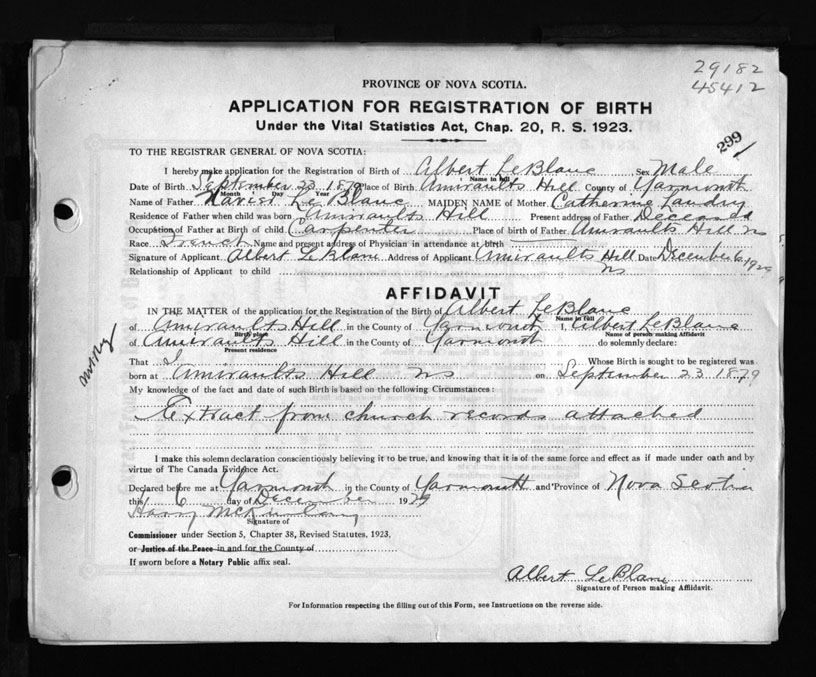 29182
45412
299
PROVINCE OF NOVA SCOTIA.
APPLICATION FOR REGISTRATION OF BIRTH
Under the Vital Statistics Act, Chap. 20, R. S. 1923.
TO THE REGISTRAR GENERAL OF NOVA SCOTIA:
I hereby make application for the Registration of Birth of Albert LeBlanc Sex Male
Name in full
Date of Birth September 23 1879 Place of Birth Amiraults Hill County of Yarmouth
Month Day Year
Name of Father LeBlanc MAIDEN NAME of Mother Catherine Landry
Residence of Father when child was born Amiraults Hill Present address of Father Deceased
Occupation of Father at Birth of child Carpenter Place of birth of Father Amiraults Hill NS
Race French Name and present address of Physician in attendance at birth
Signature of Applicant Albert LeBlanc Address of Applicant Amiraults Hill Date December 6 1929
Relationship of Applicant to child NS
AFFIDAVIT
IN THE MATTER of the application for the Registration of the Birth of Albert LeBlanc
Name in full
of Amiraults Hill in the County of Yarmouth I, Albert LeBlanc
Birth place Name of person making Affidavit
of Amiraults Hill in the County of Yarmouth do solemnly declare:
Present residence
That I Whose Birth is sought to be registered was
born at Amiraults Hill NS on September 23 1879
My knowledge of the fact and date of such Birth is based on the following Circumstances:
Extract from church records attached
I make this solemn declaration conscientiously believing it to be true, and knowing that it is of the same force and effect as if made under oath and by
virtue of The Canada Evidence Act.
Declared before me at Yarmouth in the County of Yarmouth and Province of Nova Scotia
this 6 day of December 1929
Harry
Signature of
Commissioner under Section 5, Chapter 38, Revised Statutes, 1923,
or Justice of the Peace in and for the County of
If sworn before a Notary Public affix seal.
Albert LeBlanc
Signature of Person making Affidavit.
For Information respecting the filling out of this Form, see Instructions on the reverse side.